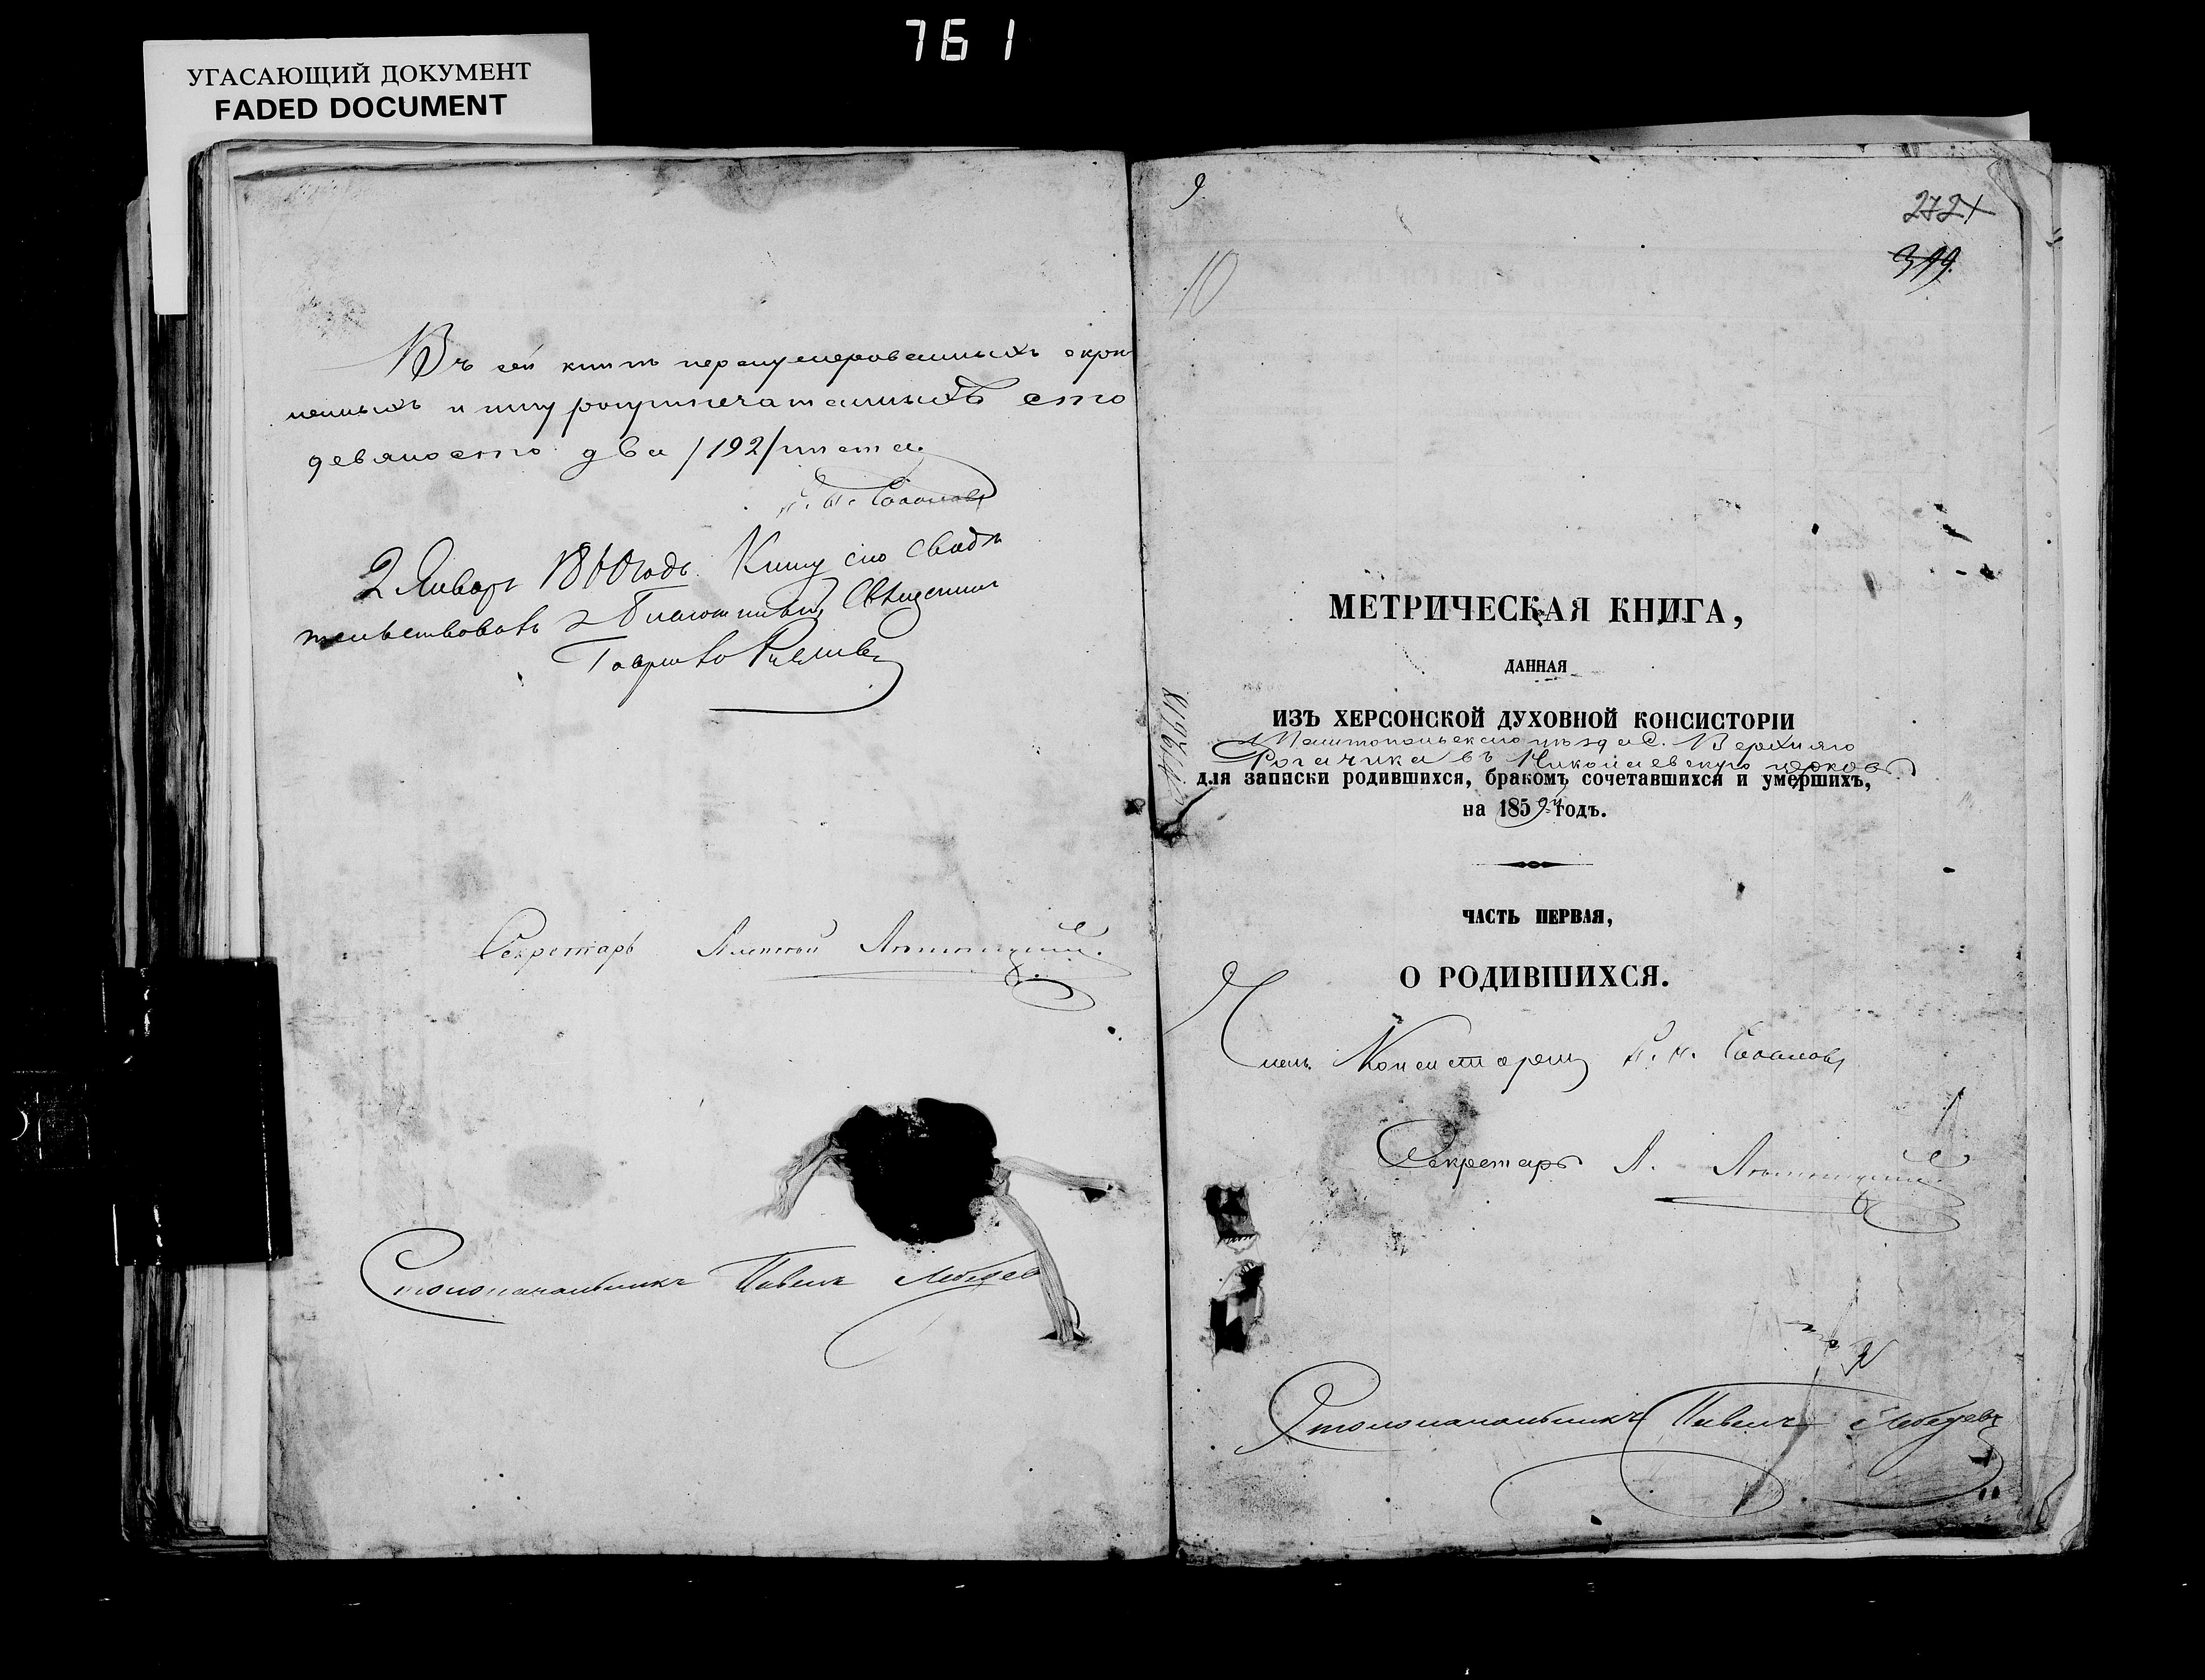 761
УГАСАЮЩИЙ ДОКУМЕНТ
FADED DOCUMENT
Въ сей книгѣ перенумерованныхъ скрѣп
ленныхъ и шнуроприпечатанныхъ сто
девяносто два /192/ листа.
2 Январ 1860 годъ. Книгу сію свидѣ
тельствовалъ Благочинный Священникъ
Секретарь Алексѣй
Столоначальникъ Павелъ Лебедев
9.
272
399.
10
МЕТРИЧЕСКАЯ КНИГА,
ДАННАЯ
ИЗЪ ХЕРСОНСКОЙ ДУХОВНОЙ КОНСИСТОРІИ
Мелитопольскаго уѣзда с. Верхняго
Рогачика въ Николаевскую церковь
для записки родившихся, бракомъ сочетавшихся и умершихъ,
на 1859й годъ.
ЧАСТЬ ПЕРВАЯ,
О РОДИВШИХСЯ.
Членъ Консисторіи
Секретарь А.
Столоначальникъ Павелъ Лебедевъ